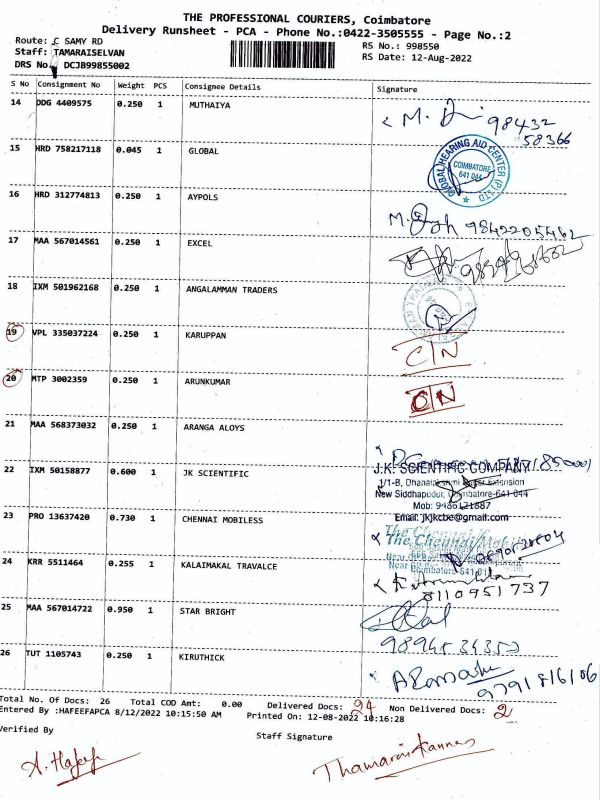 THE PROFESSIONAL COURIERS, Coimbatore
Delivery Runsheet - PCA - Phone No.:0422-3505555 - Page No.:2
Route: C SAMY RD
RS No.: 998550
Staff: TAMARAISELVAN
RS Date: 12-Aug-2022
DRS No DCJB99855002
S No Consignment No Weight PCS Consignee Details Signature
14 DDG 4409575 0.250 1 MUTHAIYA
98432
58366
15 HRD 758217118 0.045 1 GLOBAL
GLOBAL HEARING AID CENTER (P) LTD
COIMBATORE
641 044
16 HRD 312774813 0.250 1 AYPOLS
9842205462
17 MAA 567014561 0.250 1 EXCEL
18 IXM 501962168 0.250 1 ANGALAMMAN TRADERS
19 VPL 335037224 0.250 1 KARUPPAN
C/N
20 MTP 3002359 0.250 1 ARUNKUMAR
21 MAA 568373032 0.250 1 ARANGA ALOYS
22 IXM 50158877 0.600 1 JK SCIENTIFIC
J.K. SCIENTIFIC COMPANY
New Siddhapudur, Coimbatore-641 044
Email: jkjkcbe@gmail.com
23 PRO 13637420 0.730 1 CHENNAI MOBILESS
The Chennai Mobil
24 KRR 5511464 0.255 1 KALAIMAKAL TRAVALCE
8110951737
25 MAA 567014722 0.950 1 STAR BRIGHT
26 TUT 1105743 0.250 1 KIRUTHICK
Total No. Of Docs: 26 Total COD Amt: 0.00 Delivered Docs: 24 Non Delivered Docs: 2
Entered By :HAFEEFAPCA 8/12/2022 10:15:50 AM Printed On: 12-08-2022 10:16:28
Verified By
Staff Signature
A. Hafeefa